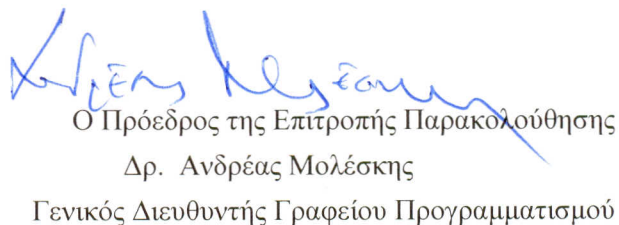 Ανδρέας Μολέσκης
Ο Πρόεδρος της Επιτροπής Παρακολούθησης
Δρ. Ανδρέας Μολέσκης
Γενικός Διευθυντής Γραφείου Προγραμματισμού